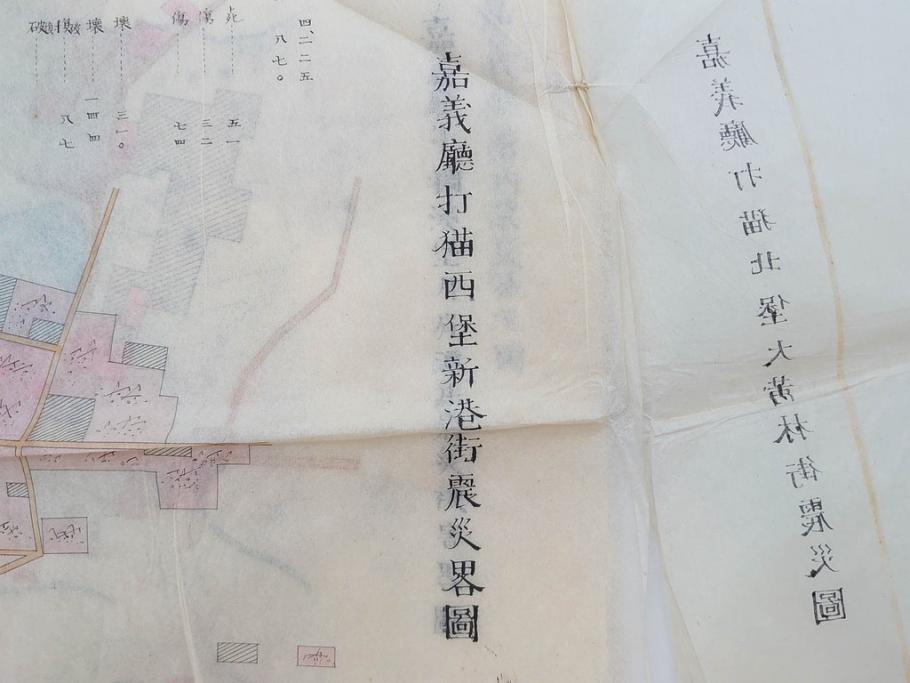 嘉義廳打猫北堡大莆林街震災圖
嘉義廳打猫西堡新港街震災畧圖
四、二二五
八七〇
死 五一
傷 三二
傷 七四
壞 三一〇
壞 一四四
八七